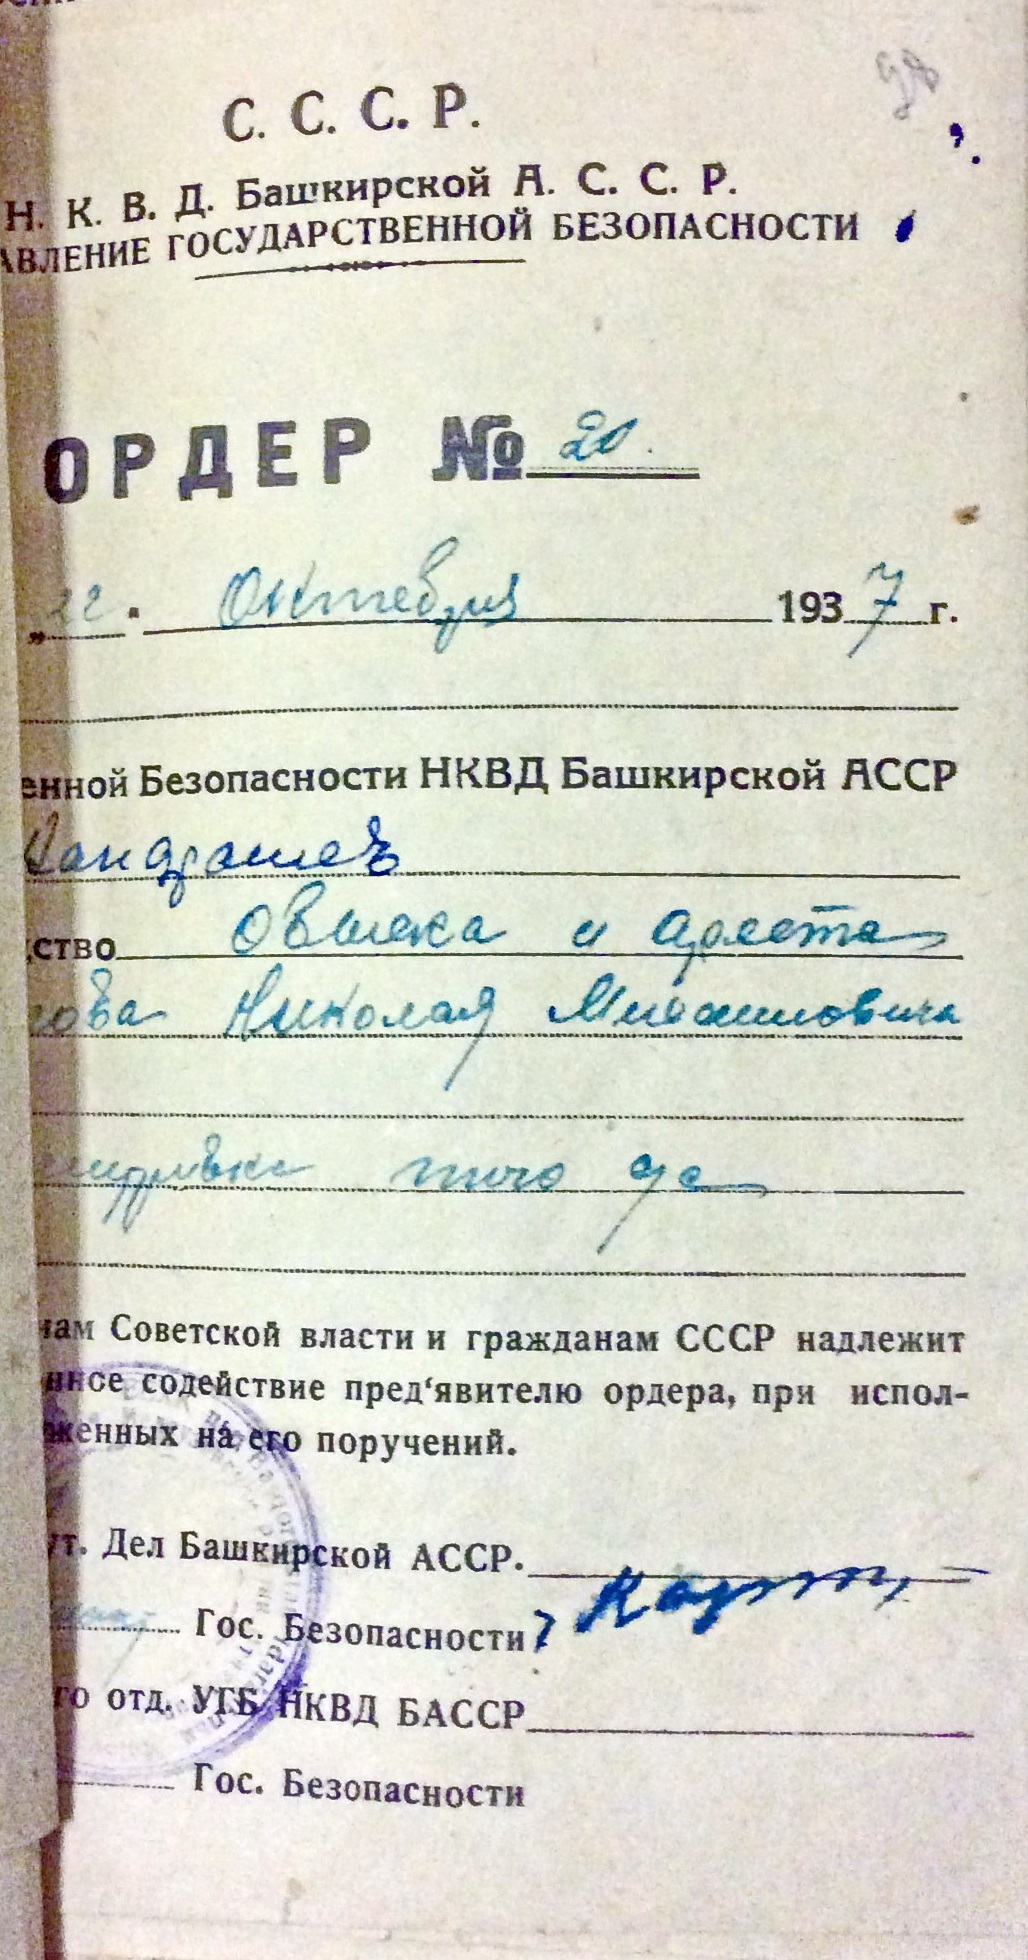 С. С. С. Р.
Н. К. В. Д. Башкирской А. С. С. Р.
АВЛЕНИЕ ГОСУДАРСТВЕННОЙ БЕЗОПАСНОСТИ
ОРДЕР № 20.
„22" Октября 1937 г.
енной Безопасности НКВД Башкирской АССР
Кандрашев
ство Обыска и ареста
ова Николая
того дс
нам Советской власти и гражданам СССР надлежит
нное содействие пред‘явителю ордера, при испол-
женных на его поручений.
ут. Дел Башкирской АССР.
Гос. Безопасности
го отд. УГБ НКВД БАССР
Гос. Безопасности